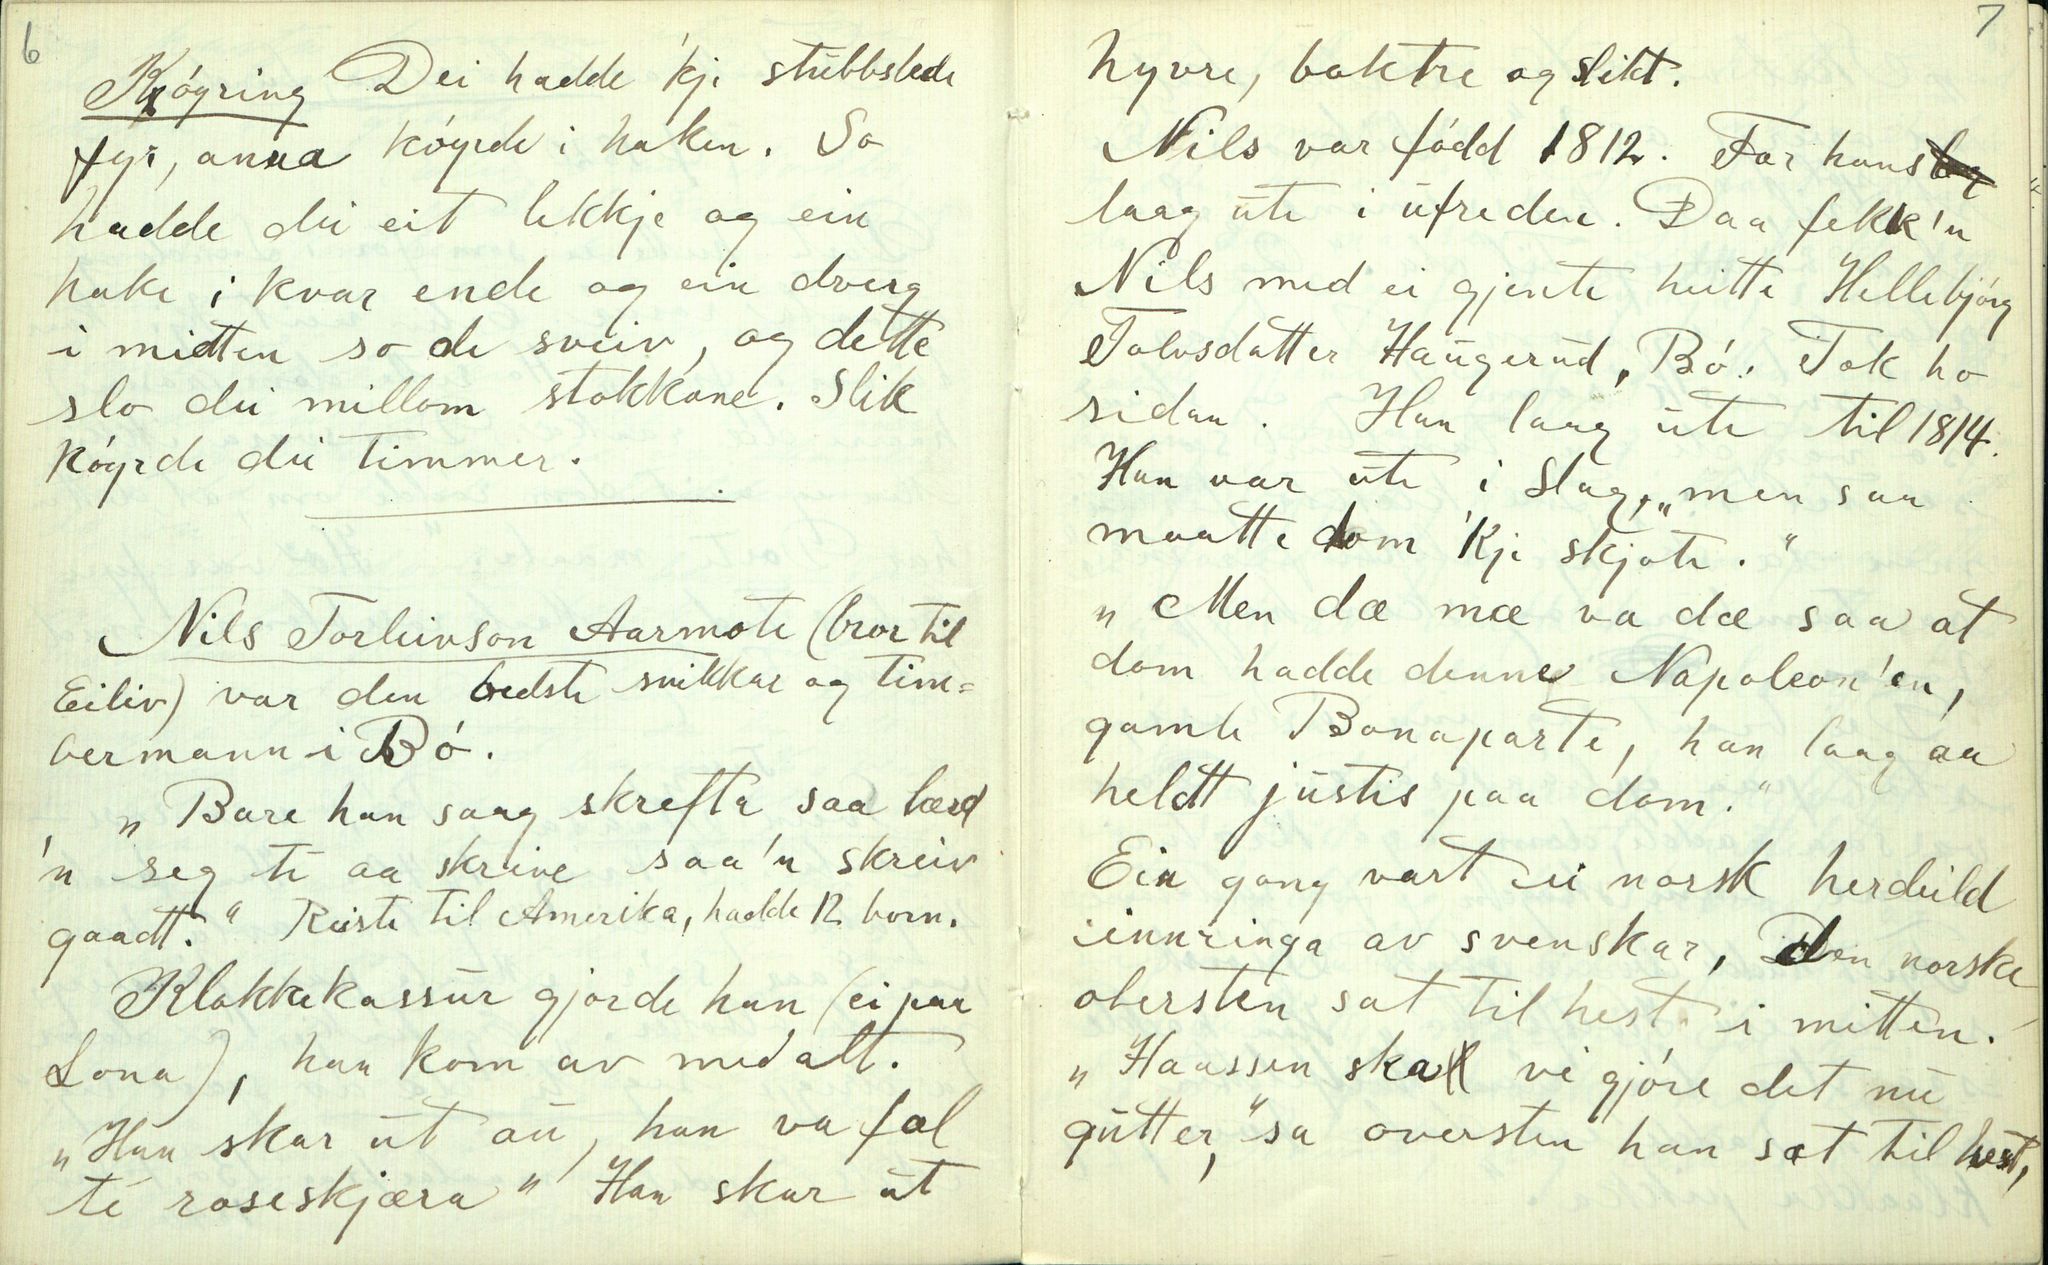 6
Kóyring Dei hadde 'kje stubbslede
fyr, anna kóyrde i haken. So
hadde dei eit lekkje og ein
hake i kvar ende og ein dverg
i midten so de sveiv, og dette
slo dei millom stokkane. Slik
kóyrde dei timmer.
Nils Torleivson Aarmote (bror til
Eiliv) var den bedste snikkar og tim=
bermann i Bó.
„Bare han saag skrefta saa lærd
'n seg te aa skrive saa'n skreiv
gaadt." Reiste til Amerika, hadde 12 born.
Klokkekassur gjorde han (ei paa
Lona), han kom av med alt.
„Han skar ut au, han va fal
te roseskjæra" Han skar ut
7
hyvre, boktre og slikt.
Nils var fódd 1812. Far hans
laag ute i ufreden. Daa fekk'n
Nils med ei gjente heitte Hellebjórg
Tolvsdatter Haugerud, Bó. Tok ho
sidan. Han laag ute til 1814.
Han var ute i slag, „men saa
maatte dom 'kje skjote."
„Men dæ mæ va dæ saa at
dom hadde denne Napoleon'en,
gamle Bonaparte, han laag aa
heldt justis paa dom."
Ein gong vart ei norsk herdeild
innringa av svenskar, den norske
obersten sat til hest i mitten.
„Haassen skal vi gjóre det nu
gutter," sa oversten han sat til hest,